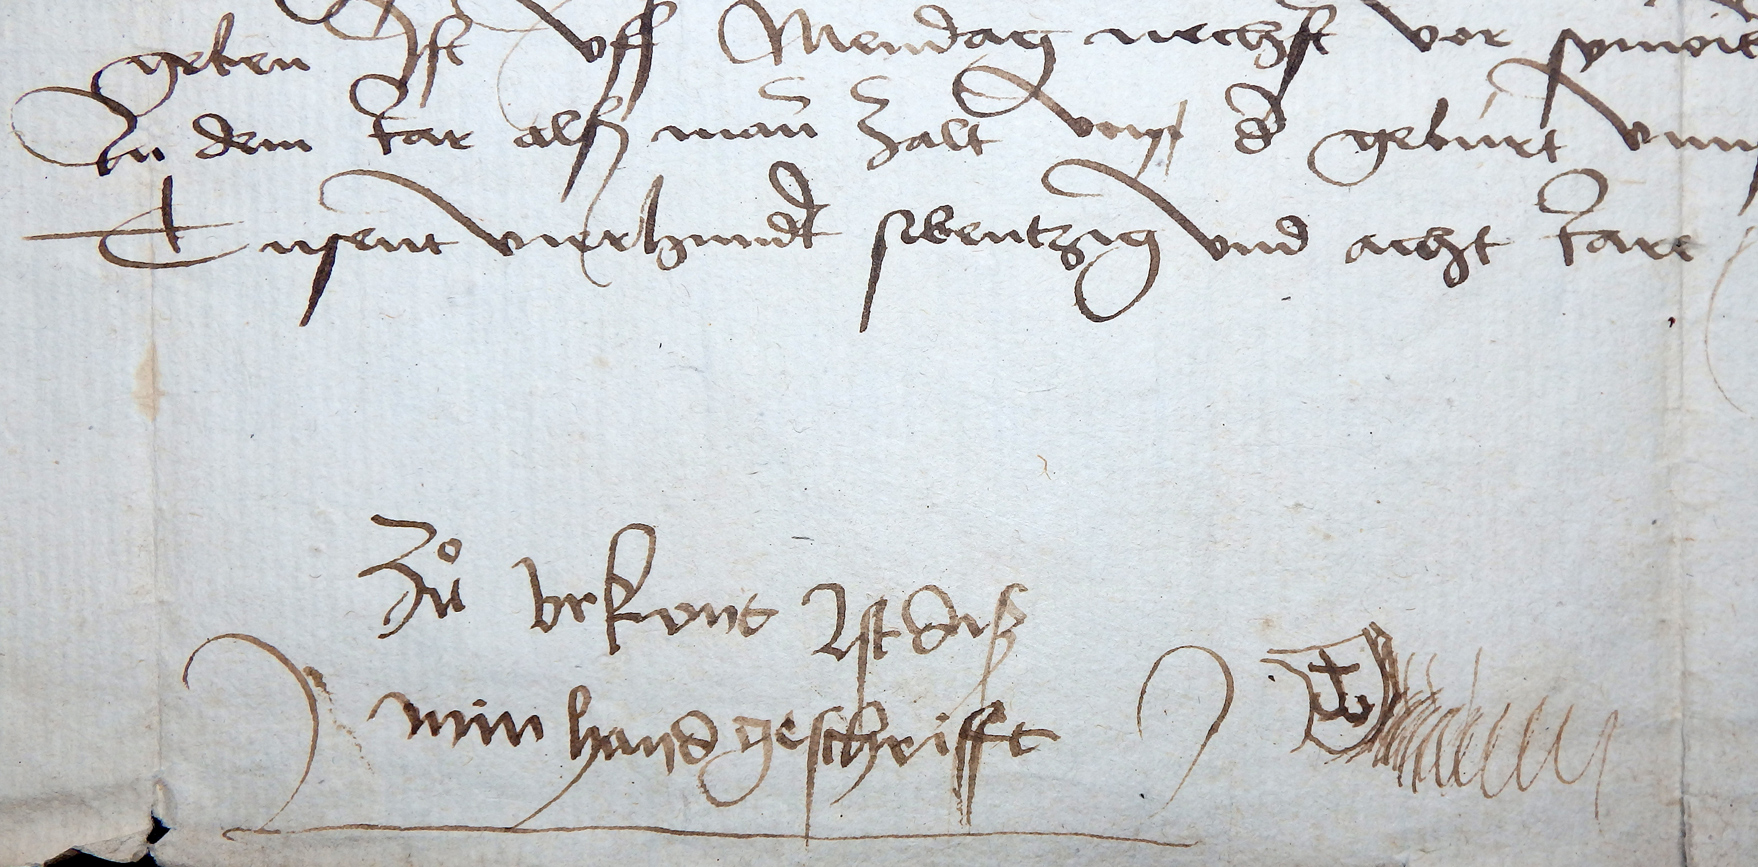 geben Ist vff Mendag nechst vor symo
In dem Jar alß man zalt von d' geburt
Tusent vierhundt sibentzig vnd acht Jare
Zů vrkond Ist diß
min handgeschrifft